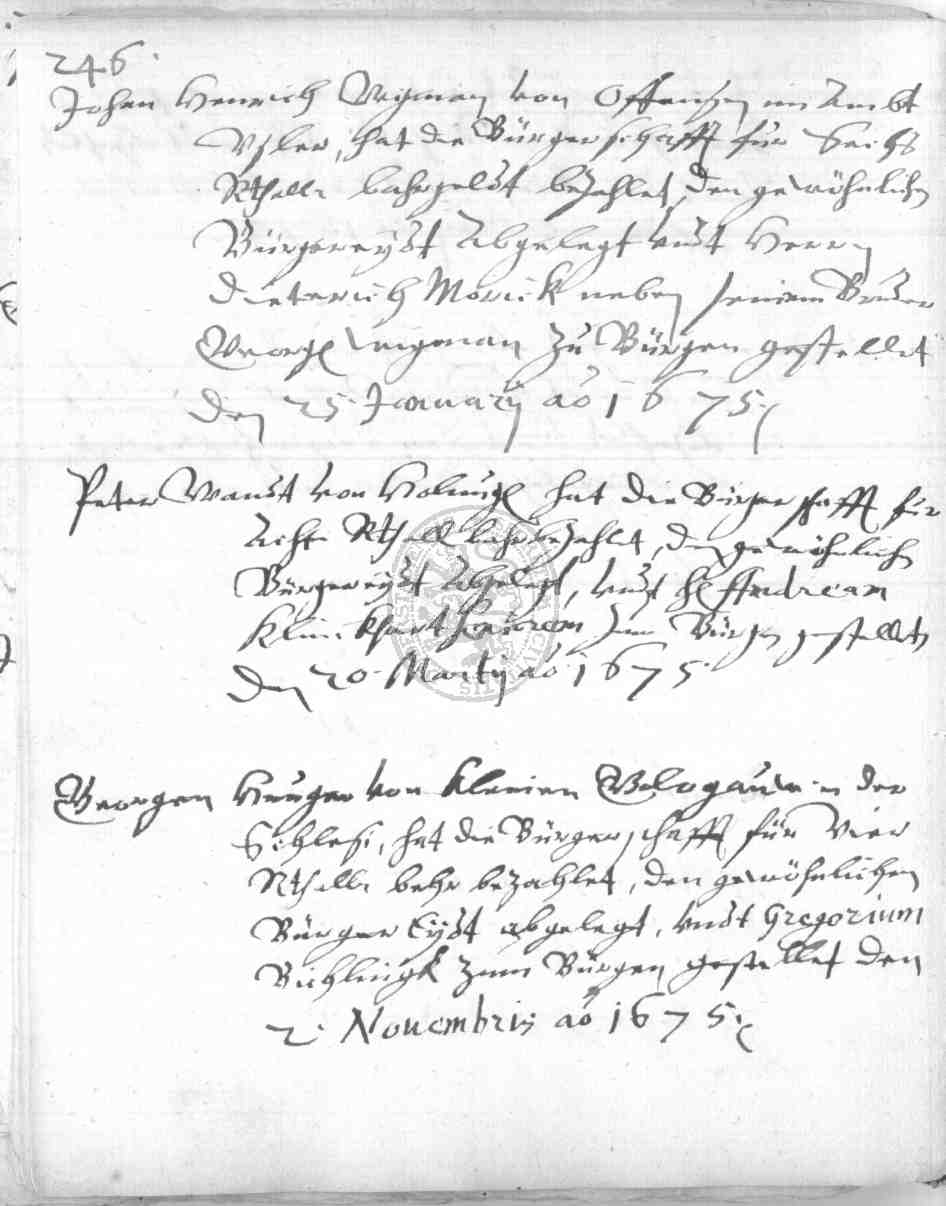 246.
Johan Henrich Wigman von Offensen im Ambt
Usler, hat die Bürgerschafft für Sechs
Rthall. bahrgeldt bezahlet, den gewöhnlichen
Bürgereydt abgelegt undt Herrn
Dieterich Morick neben seinem Bruder
Georg Wigman zu Bürgen gestellet
den 25 January ao 1675.
Peter Wandt von hat die Bürgerschafft für
Acht Rthall. bahr bezahlet, den gewöhnlich
Bürgereydt abgelegt, undt H. Andream
zum Bürgen gestellet
den 20 Martij ao 1675.
Georgen von Kleinen Glogauw in der
Schlesi, hat die Bürgerschafft für Vier
Rthall. behr bezahlet, den gewöhnlichen
Bürger Eydt abgelegt, undt Gregorium
zum Bürgen gestellet den
2. Novembris ao 1675.